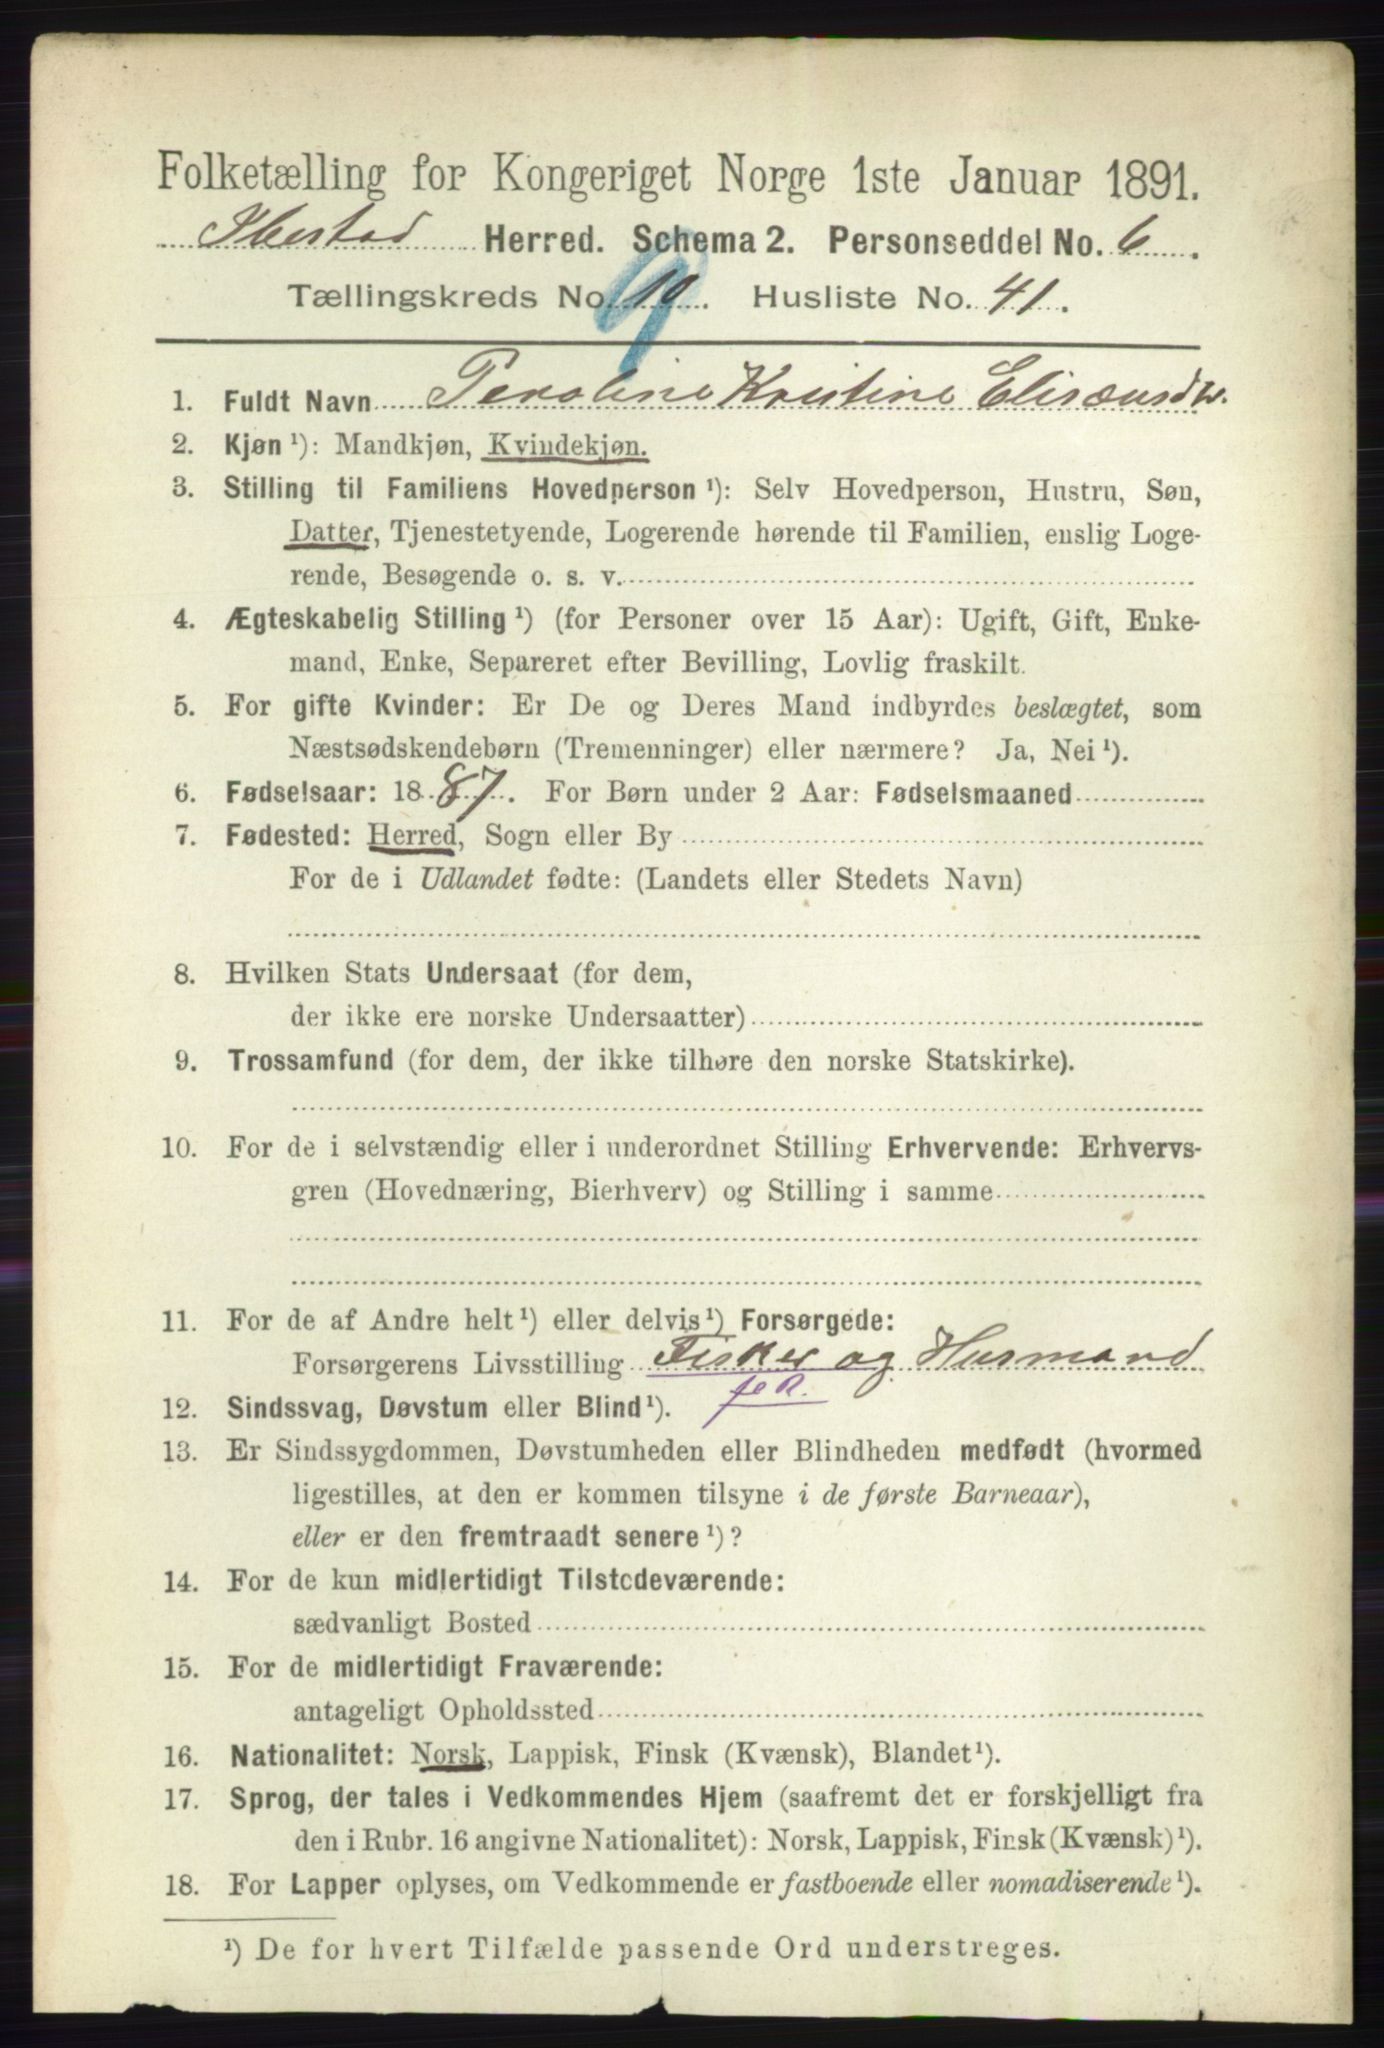 Folketælling for Kongeriget Norge 1ste Januar 1891.
Ibestad Herred. Schema 2. Personseddel No. 6.
Tællingskreds No. 10. Husliste No. 41.
9
1. Fuldt Navn Peroline Kristine Elisæusdtr.
2. Kjøn ¹): Mandkjøn, Kvindekjøn.
3. Stilling til Familiens Hovedperson ¹): Selv Hovedperson, Hustru, Søn,
Datter, Tjenestetyende, Logerende hørende til Familien, enslig Loge-
rende, Besøgende o. s. v.
4. Ægteskabelig Stilling ¹) (for Personer over 15 Aar): Ugift, Gift, Enke-
mand, Enke, Separeret efter Bevilling, Lovlig fraskilt.
5. For gifte Kvinder: Er De og Deres Mand indbyrdes beslægtet, som
Næstsødskendebørn (Tremenninger) eller nærmere? Ja, Nei ¹).
6. Fødselsaar: 1887. For Børn under 2 Aar: Fødselsmaaned
7. Fødested: Herred, Sogn eller By
For de i Udlandet fødte: (Landets eller Stedets Navn)
8. Hvilken Stats Undersaat (for dem,
der ikke ere norske Undersaatter)
9. Trossamfund (for dem, der ikke tilhøre den norske Statskirke).
10. For de i selvstændig eller i underordnet Stilling Erhvervende: Erhvervs-
gren (Hovednæring, Bierhverv) og Stilling i samme
11. For de af Andre helt ¹) eller delvis ¹) Forsørgede:
Forsørgerens Livsstilling Fisker og Husmand
12. Sindssvag, Døvstum eller Blind ¹).
13. Er Sindssygdommen, Døvstumheden eller Blindheden medfødt (hvormed
ligestilles, at den er kommen tilsyne i de første Barneaar),
eller er den fremtraadt senere ¹)?
14. For de kun midlertidigt Tilstedeværende:
sædvanligt Bosted
15. For de midlertidigt Fraværende:
antageligt Opholdssted
16. Nationalitet: Norsk, Lappisk, Finsk (Kvænsk), Blandet ¹).
17. Sprog, der tales i Vedkommendes Hjem (saafremt det er forskjelligt fra
den i Rubr. 16 angivne Nationalitet): Norsk, Lappisk, Finsk (Kvænsk) ¹).
18. For Lapper oplyses, om Vedkommende er fastboende eller nomadiserende ¹).
¹) De for hvert Tilfælde passende Ord understreges.